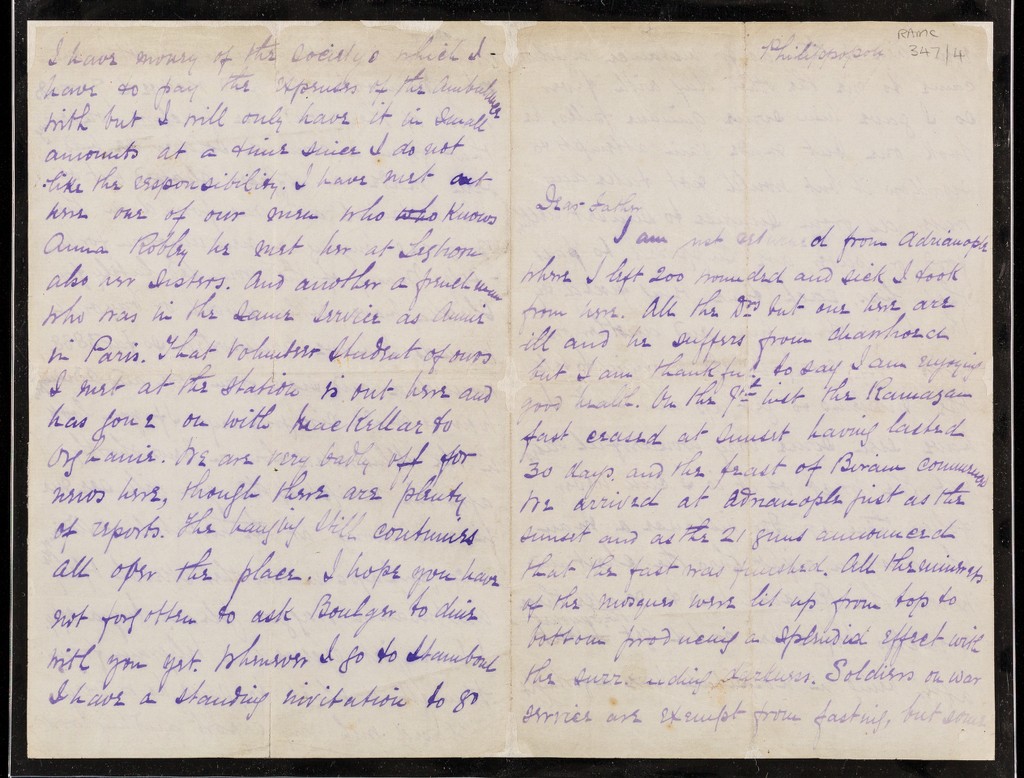 I have money of the society's which I
have to pay the expenses of the ambulance
with but I will only have it in small
amounts at a time since I do not
like the responsibility. I have met out
here one of our men who who knows
Anna Robley he met her at Leghorn
also her sisters. And another a frenchman
who was in the same service as Annie
in Paris. That volunteer student of ours
I met at the station is out here and
has gone on with MacKellar to
Orghanie. We are very badly off for
news here, though there are plenty
of reports. The hanging still continues
all over the place. I hope you have
not forgotten to ask Boulger to dine
with you yet. Whenever I go to Stamboul
I have a standing invitation to go
RAMC
347/4
Philippopoli
Dear Father
I am just d from Adrianople
where I left 200 wounded and sick I took
from here. All the Drs but one here are
ill and he suffers from diarrhoea
but I am thankful to say I am enjoying
good health. On the 7th inst the Ramazan
fast ceased at sunset having lasted
30 days and the feast of Biram commenced
We arrived at Adrianople just as the
sunset and as the 21 guns announced
that the fast was finished. All the minerets
of the mosques were lit up from top to
bottom producing a splendid effect with
the surr nding darkness. Soldiers on war
service are exempt from fasting, but some